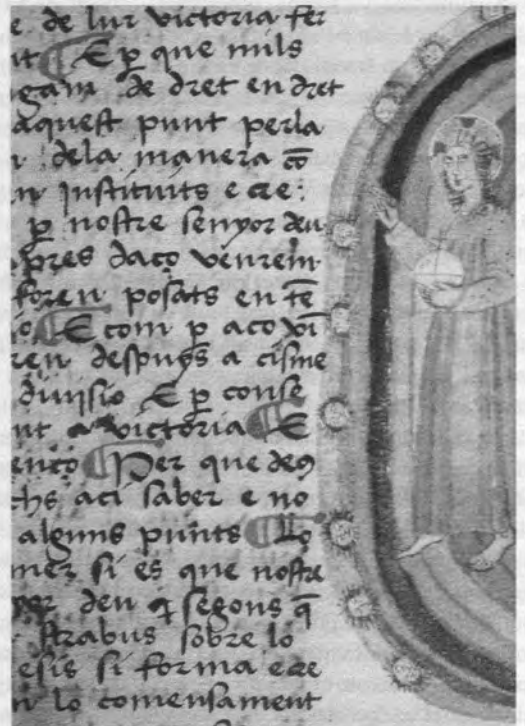 e de lur victoria fer
it E p̱ que mils
ngam de dret en dret
aquest punt perla
n dela manera cō
n instituits e cre
p̱ nostre senyor deu
apres daço venrem
foren posats en tē
io E com p̱ aco vī
ren despuys a cisme
diuisio E p̱ conse
nt a victoria E
enço Per que deg
chs aci saber e no
alguns punts Lo
mer si es que nostre
yor deu q̄ segons q̄
strabus sobre lo
esis si forma e cre
n lo comensament